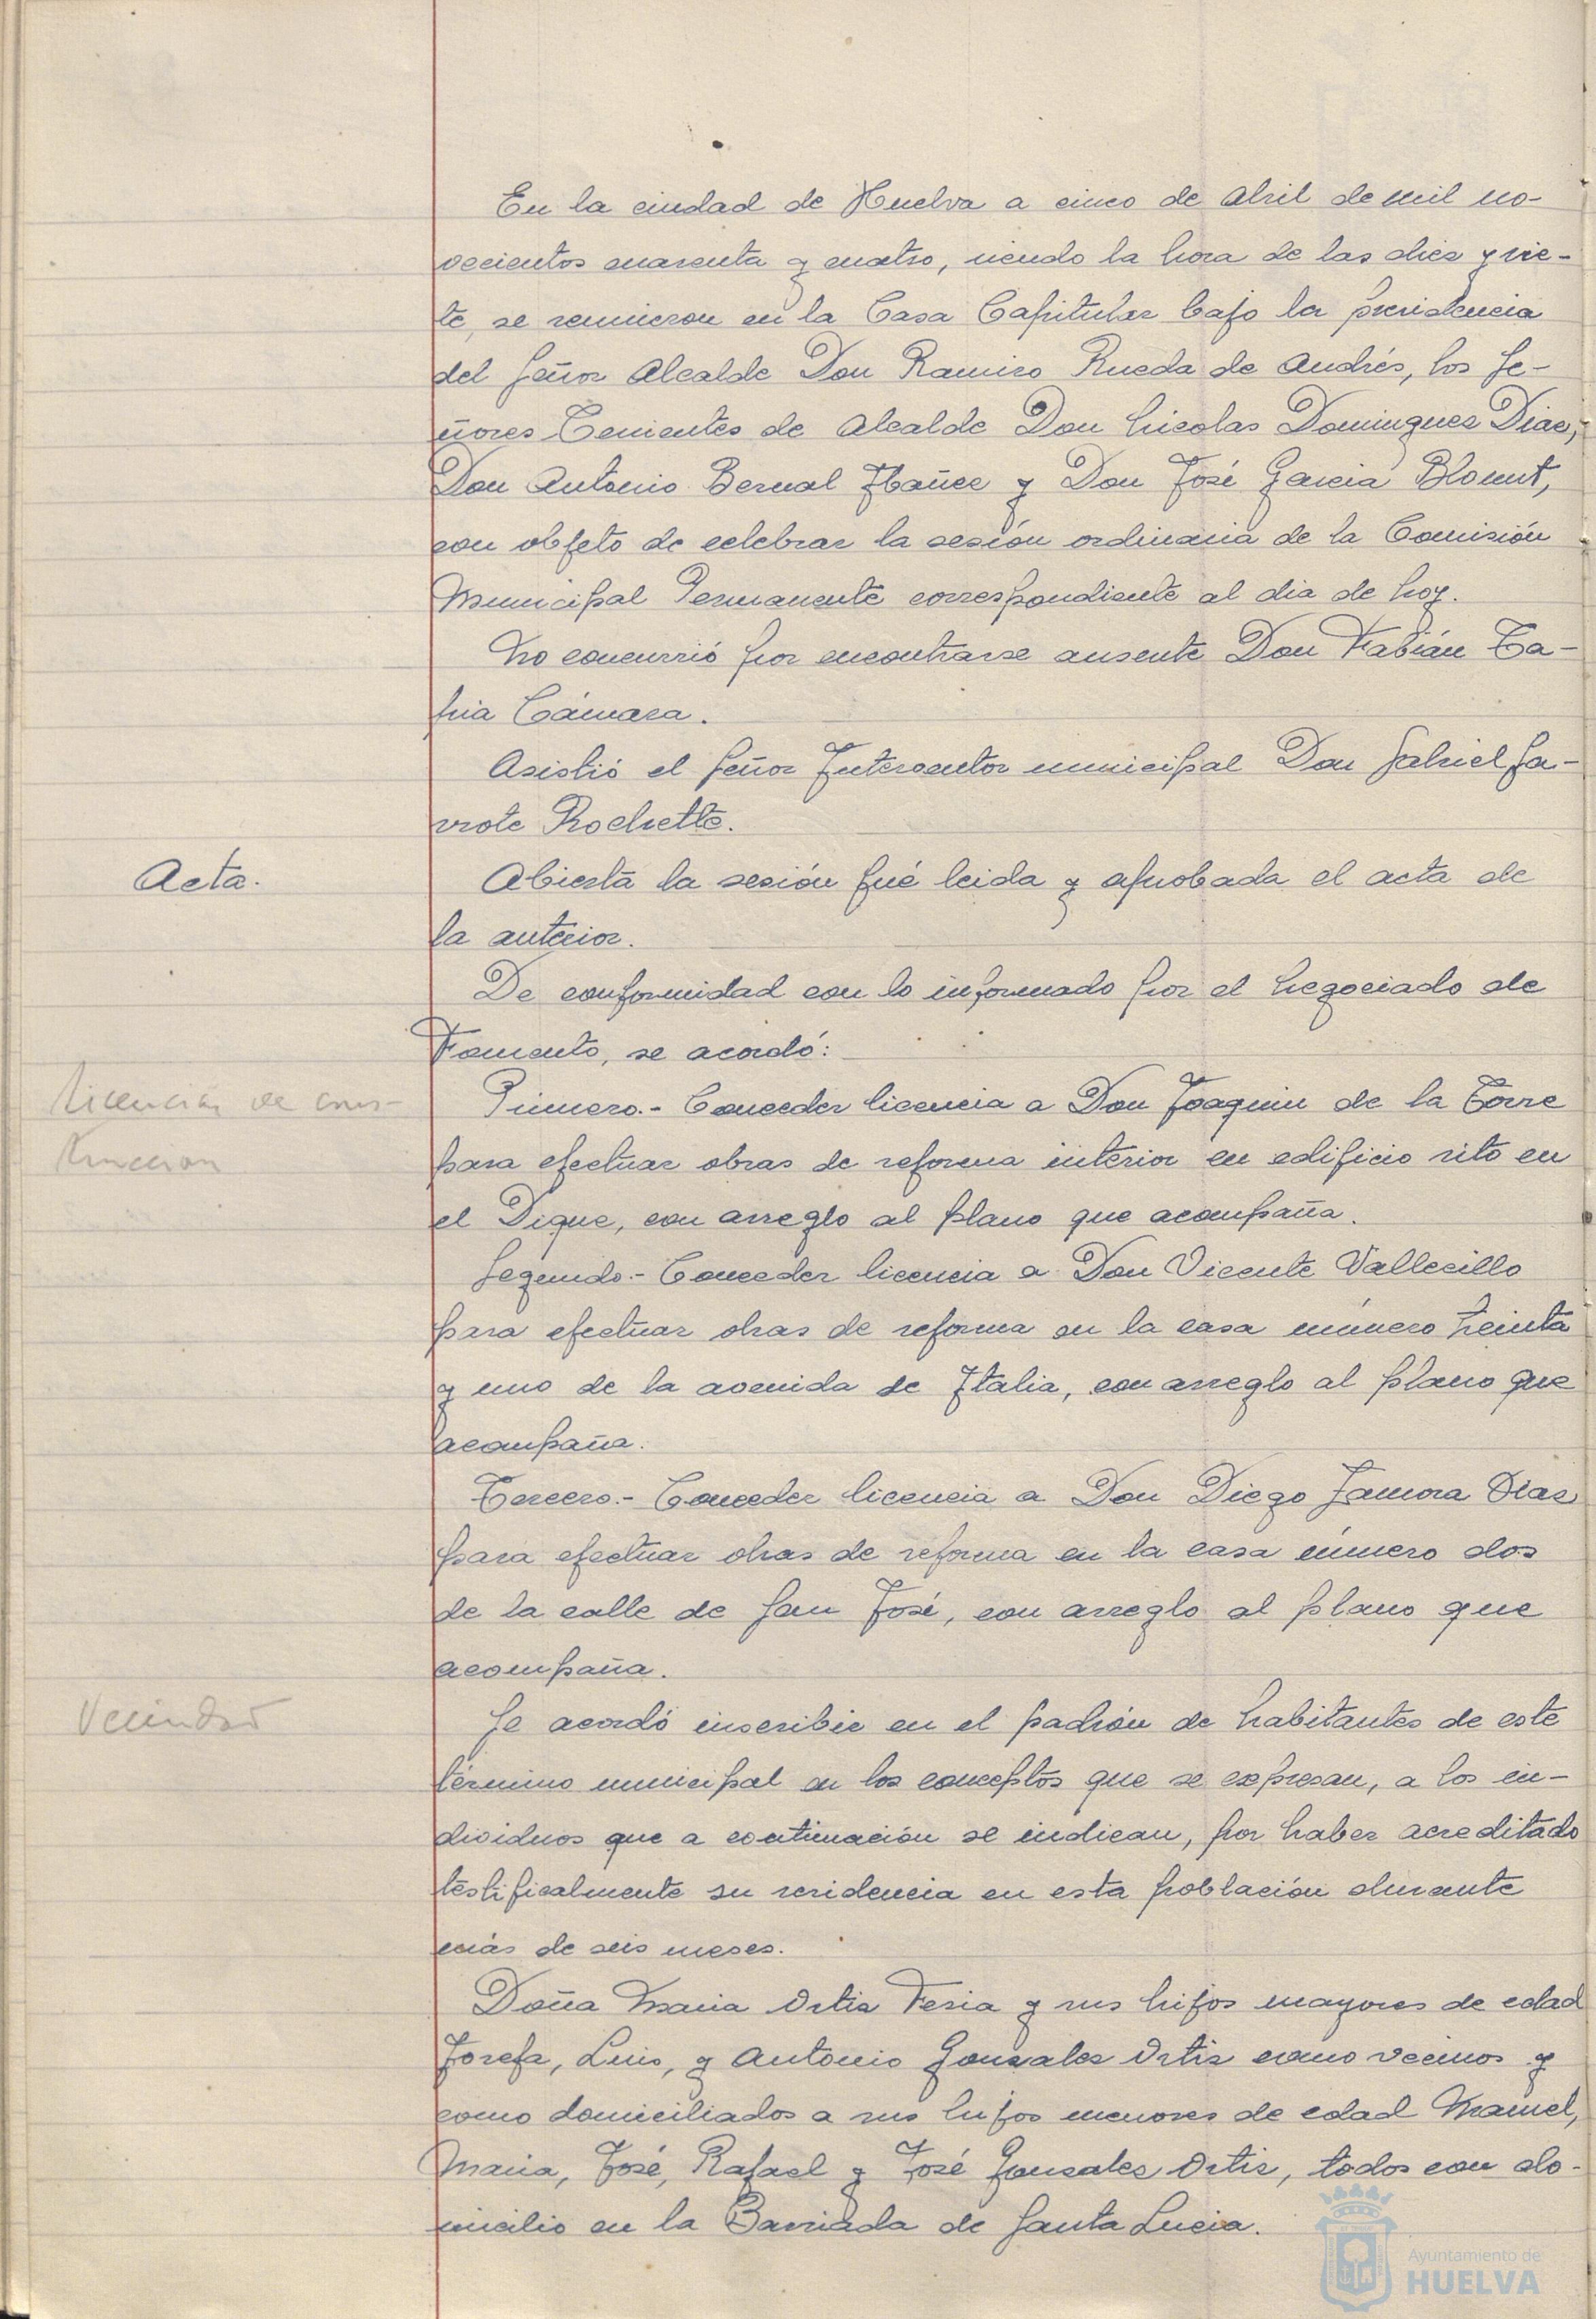 En la ciudad de Huelva a cinco de abril de mil no-
vecientos cuarenta y cuatro, siendo la hora de las diez y sie-
te, se reunieron en la Casa Capitular bajo la presidencia
del Señor Alcalde Don Ramiro Rueda de Andrés, los Se-
ñores Tenientes de Alcalde Don Nicolas Dominguez Diaz,
Don Antonio Bernal Ibañez y Don José Garcia Blount,
con objeto de celebrar la sesión ordinaria de la Comisión
Municipal Permanente correspondiente al dia de hoy.
No concurrió por encontrarse ausente Don Fabián Ta-
pia Cámara.
Asistió el Señor Interventor municipal Don Gabriel Ga-
vrote Rochette.
Acta.
Abierta la sesión fué leida y aprobada el acta de
la anterior.
De conformidad con lo informado por el Negociado de
Fomento, se acordó:
Licencias de cons-
truccion
Primero.- Conceder licencia a Don Joaquin de la Torre
para efectuar obras de reforma interior en edificio sito en
el Dique, con arreglo al plano que acompaña.
Segundo.- Conceder licencia a Don Vicente Vallecillo
para efectuar obras de reforma en la casa número treinta
y uno de la avenida de Italia, con arreglo al plano que
acompaña.
Tercero.- Conceder licencia a Don Diego Zamora Diaz
para efectuar obras de reforma en la casa número dos
de la calle de San José, con arreglo al plano que
acompaña.
Vecindad
Se acordó inscribir en el padrón de habitantes de este
término municipal en los conceptos que se expresan, a los in-
dividuos que a continuación se indican, por haber acreditado
testificalmente su residencia en esta población durante
más de seis meses.
Doña Maria Ortiz Feria y sus hijos mayores de edad
Josefa, Luis, y Antonio Gonzalez Ortiz como vecinos y
como domiciliados a sus hijos menores de edad Manuel,
Maria, José, Rafael y José Gonzalez Ortiz, todos con do-
micilio en la Barriada de Santa Lucia.
Ayuntamiento de
HUELVA